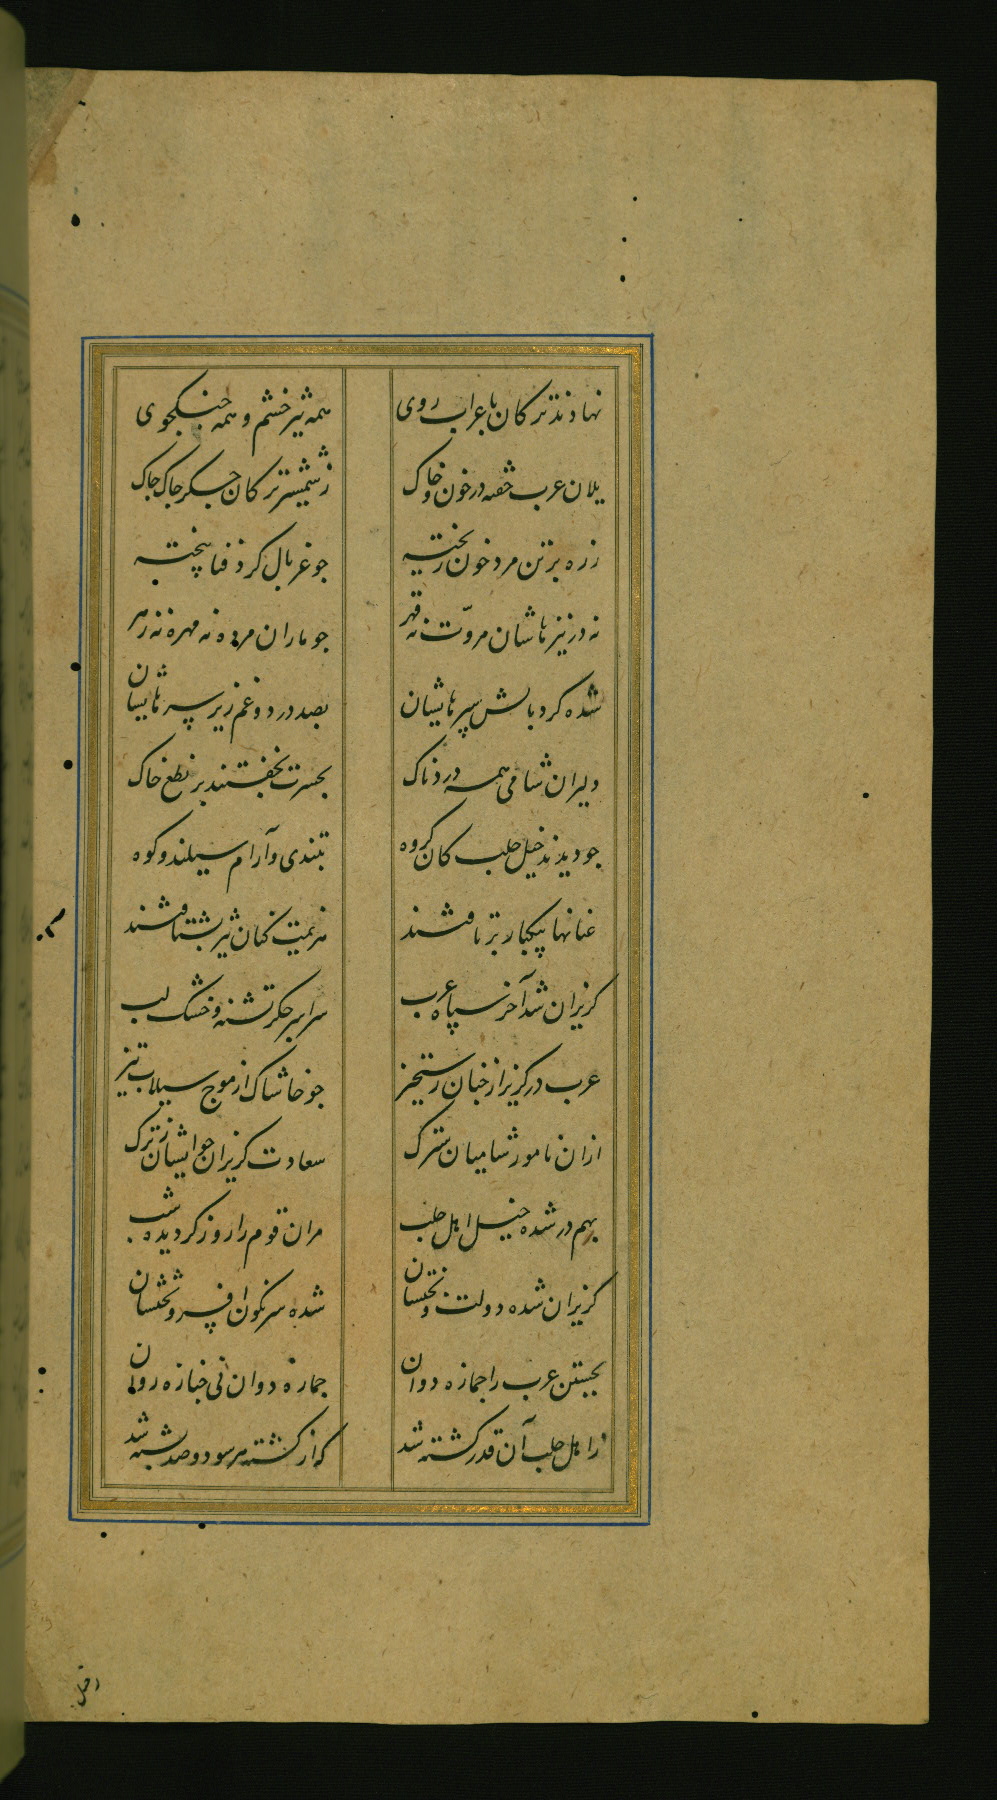 نهادند ترکان باعراب روی همه شیر خشم و همه جنکجوی
یلان عرب خفته در خون و خاک ز شمشیر ترکان جکر جاک جاک
زره بر تن مرد خون ریخته جو غربال کرد فنا بیخته
نه در نیزهاشان مروت نه قهر جو ماران مرده نه مهره نه زهر
شده کرد بالش سپرهایشان بصد درد و غم زیر سرهایشان
دلیران شامی همه دردناک بحسرت بخفتند بر نطع خاک
جو دیدند خیل حلب کان کروه بتندی و آرام سیلند و کوه
عنانها بیکبار برتافتند هزیمت کنان تیز بشتافتند
کریزان شد آخر سپاه عرب سراسر جکر تشنه و خشک لب
عرب در کریز از جنان رستخیز جو خاشاک از موج سیلاب تیز
ازان نامور شامیان سترک سعادت کریزان جو ایشان ز ترک
بهم در شده خیل اهل حلب مران قوم را روز کردیده شب
کریزان شده دولت و بختشان شده سرنکون افسر و تختشان
بجستن عرب را جمازه دوان جمازه دوان نی جنازه روان
ز اهل حلب آن قدر کشته شد که از کشته هر سو دو صد پشته شد